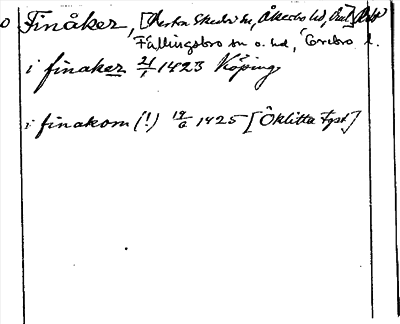 Finåker, [Herta Skeds sn, Åkerbo hd,
Fällingsbro sn o. hd, Örebro l.
i finaker 21/1 1423 Köping
i finakom (!) 19/6 1425 [Öklitta Fpst]